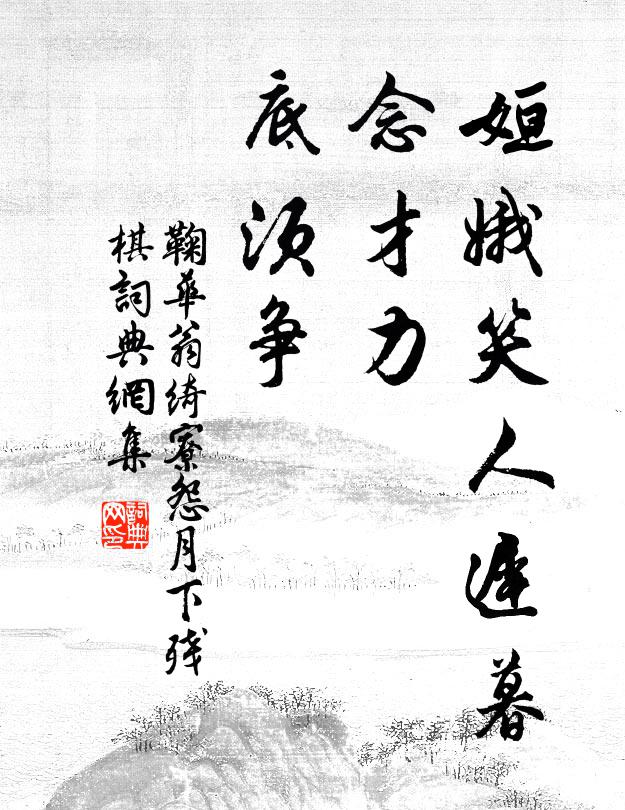 姮娥笑人遲暮
念才力
底須爭
鞠華翁綺寮怨月下残
棋詞典網集
詞典
网印